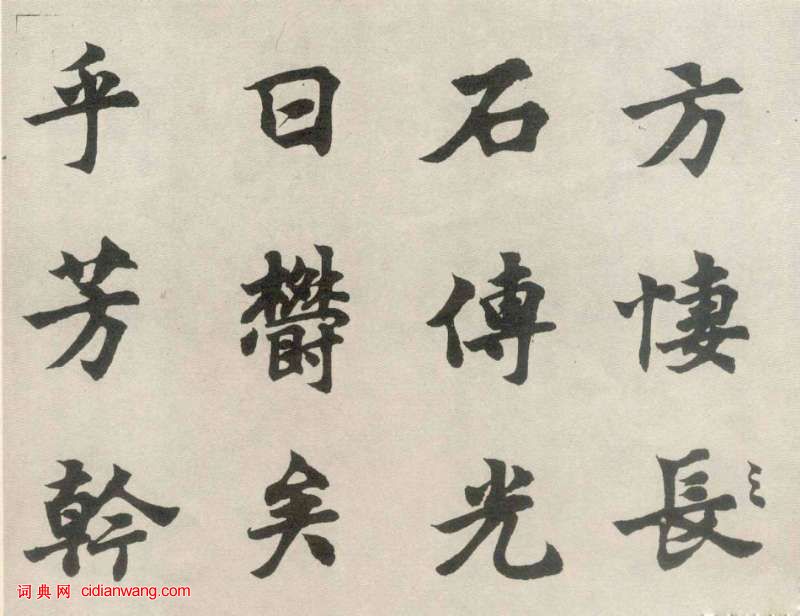 方悽長
石傳光
曰欝矣
乎芳幹
词典网 cidianwang.com